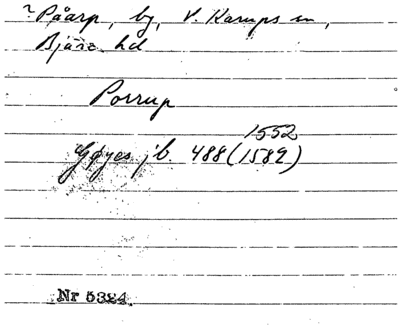 ~ Påarp, by, V. Karups sn,
Bjäre hd
Porrup
1552
Gøyes jb. 488 (1582)
Nr 5324